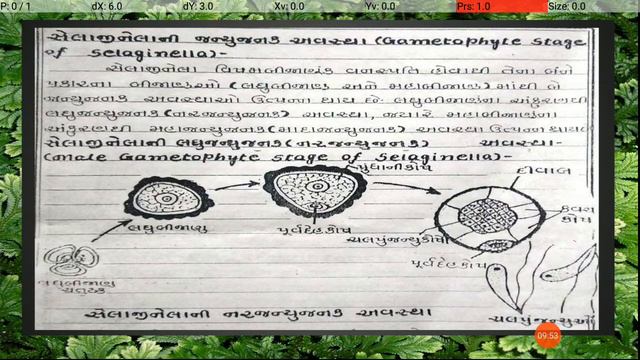 P: 0 / 1 dX: 6.0 dY: 3.0 Xv: 0.0 Yv: 0.0 Prs: 1.0 Size: 0.0
સેલાજીનેલાની જન્યુજનક અવસ્થા (Gametophyte Stage
of Selaginella)-
સેલાજીનેલા વિષમબીજાણુક વનસ્પતિ હોવાથી તેના બંને
પ્રકારના બીજાણુઓ (લઘુબીજાણુ અને મહાબીજાણુ) માંથી બે
જન્યુજનક અવસ્થાઓ ઉત્પન્ન થાય છે. લઘુબીજાણુના અંકુરણથી
લઘુજન્યુજનક (નરજન્યુજનક) અવસ્થા, જ્યારે મહાબીજાણુના
અંકુરણથી મહાજન્યુજનક (માદાજન્યુજનક) અવસ્થા ઉત્પન્ન થાય છે
સેલાજીનેલાની લઘુજન્યુજનક (નરજન્યુજનક) અવસ્થા-
(male Gametophyte stage of Selaginella)-
પુંધાનીકોષ
દીવાલ
લઘુબીજાણુ
પૂર્વદેહકોષ
ચલપુંજન્યુકોષો
કવચ
કોષ
પૂર્વદેહકોષ
લઘુબીજાણુ
ચતુષ્ક
સેલાજીનેલાની નરજન્યુજનક અવસ્થા
ચલપુંજન્યુઓ
09:53